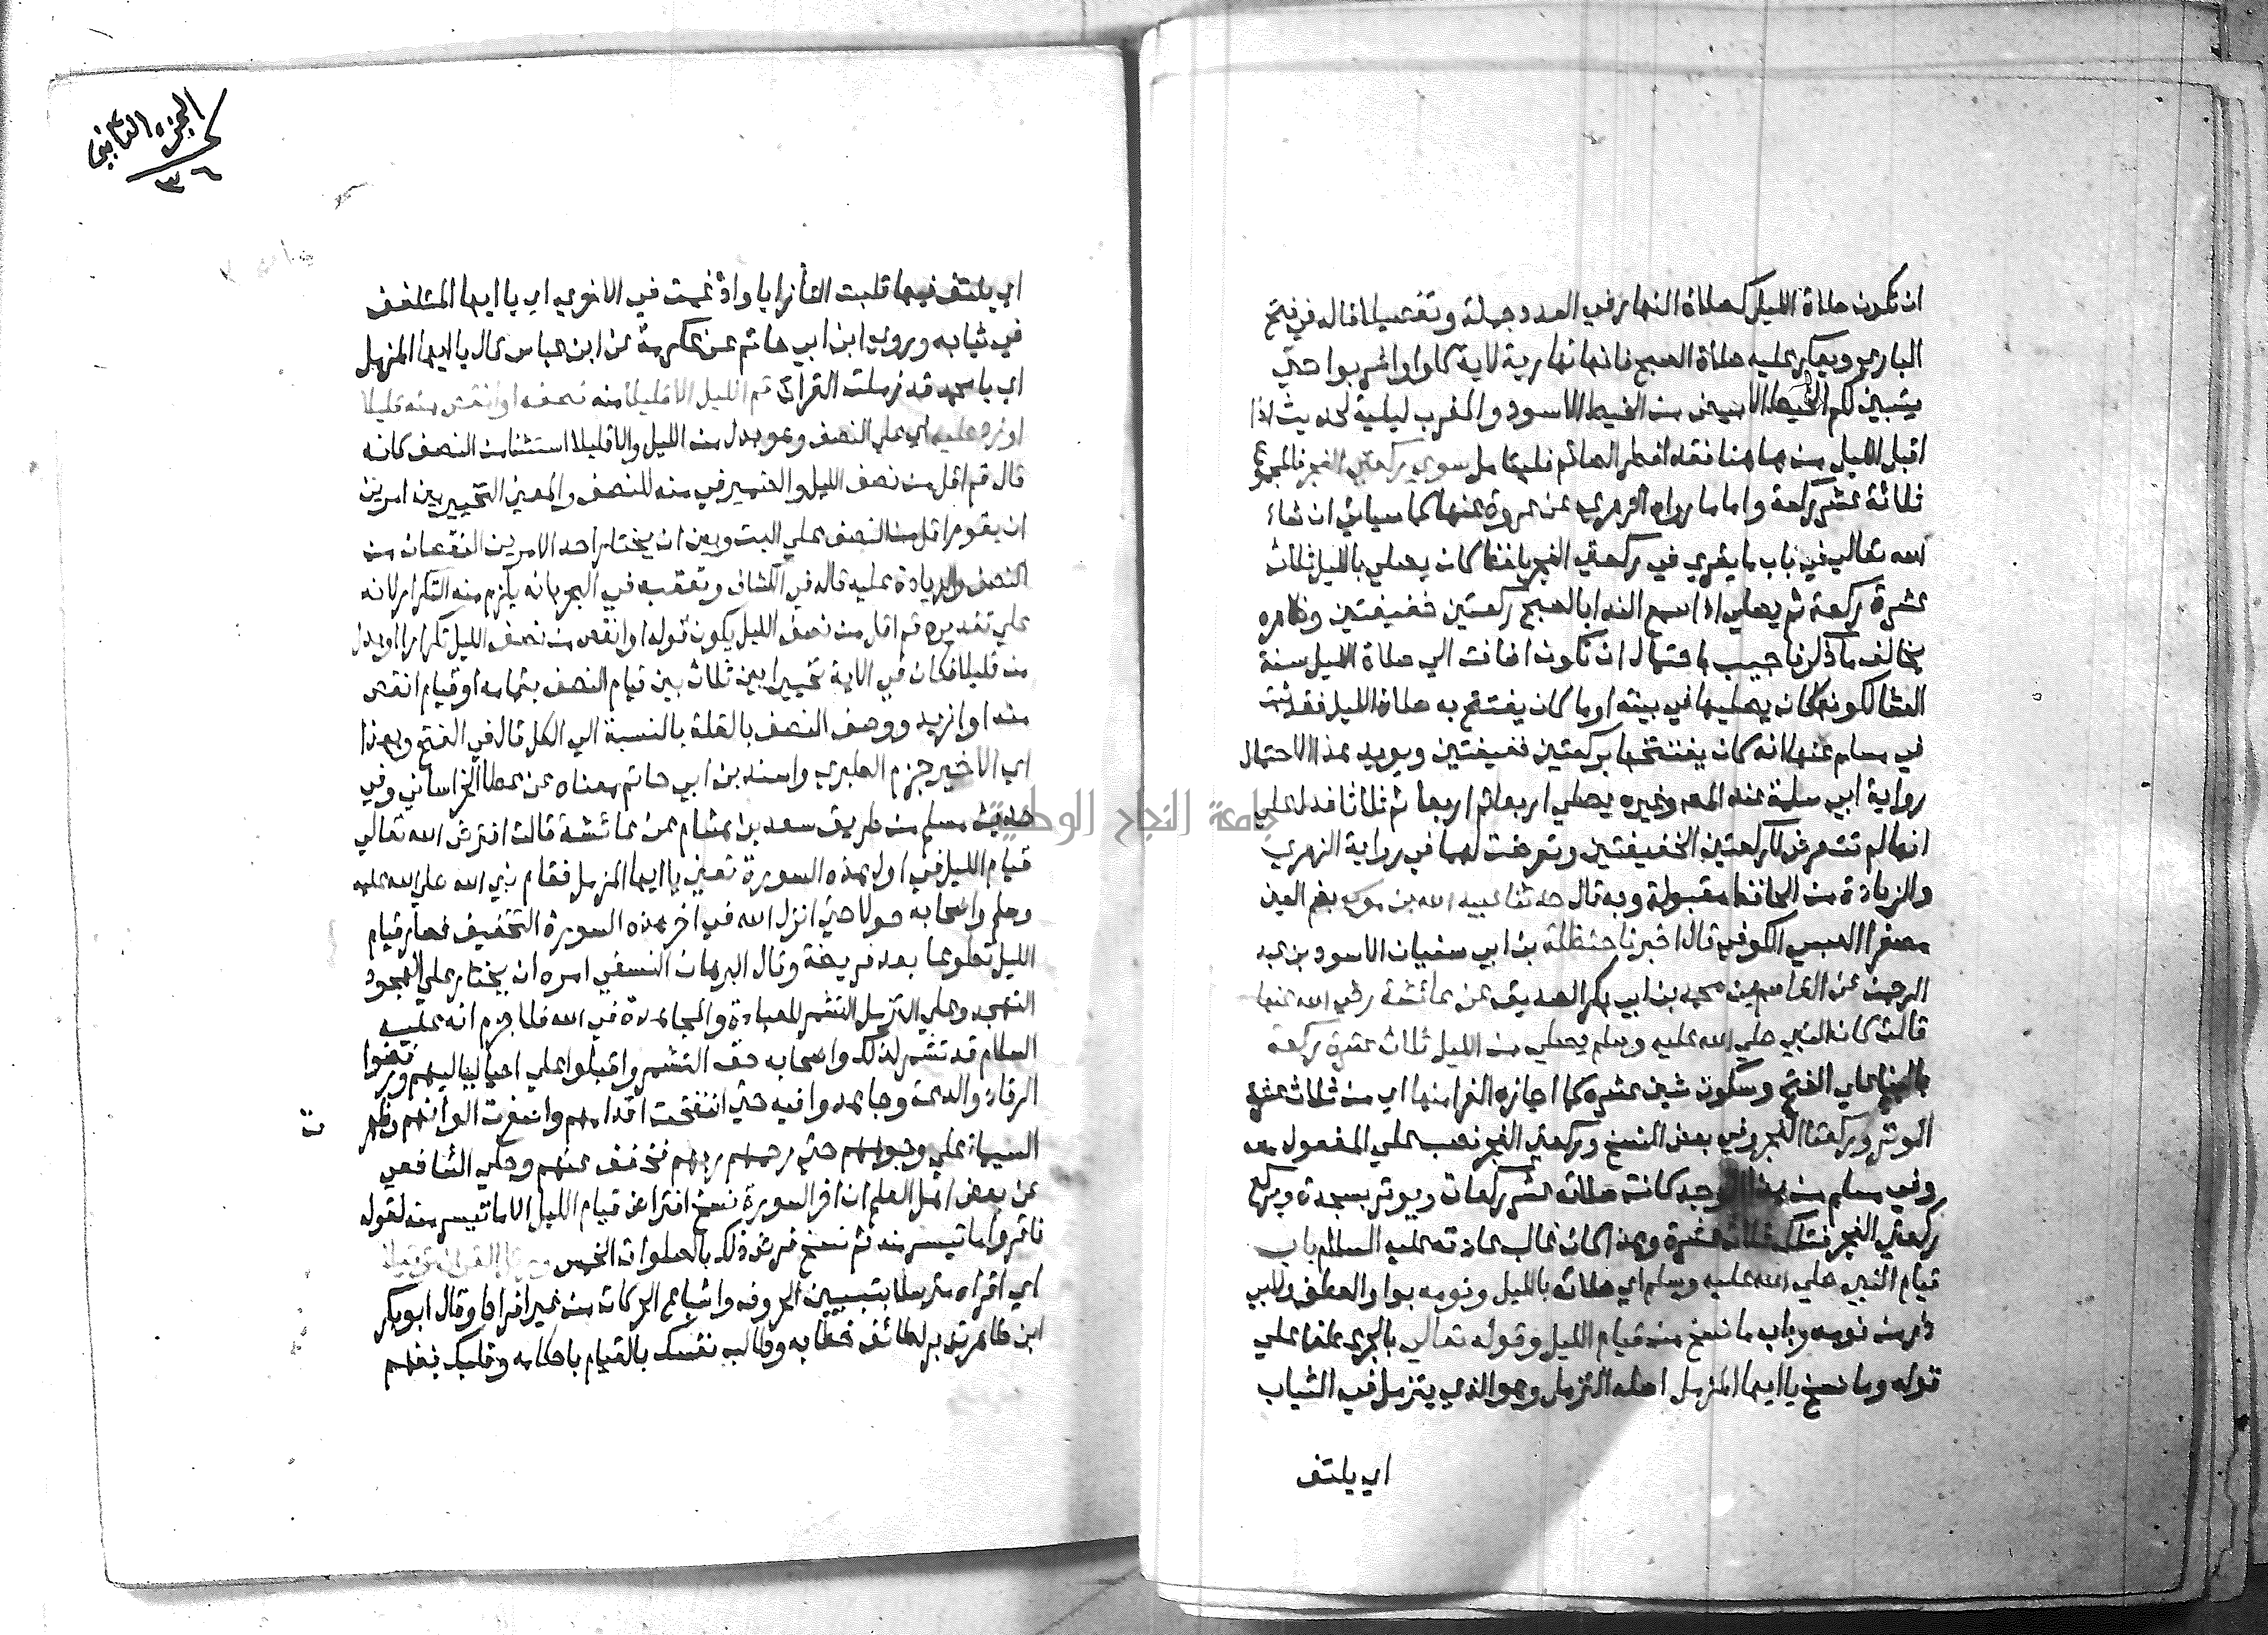 ان تكون صلاة الليل كصلاة النهار في العدد جملة وتفصيلا قاله في فتح
الباري ويعكر عليه صلاة الصبح فانها نهارية لاية كلوا واشربوا حتي
يتبين لكم الخيط الابيض من الخيط الاسود والمغرب ليلية لحديث اذا
اقبل الليل من هاهنا فقد افطر الصائم فليتامل سوي ركعتي الفجر فالمجموع
ثلاثة عشر ركعة واما ما رواه الزهري عن عروة عنها كما سياتي ان شاء
الله تعالي في باب ما يقري في ركعتي الفجر بلفظ كان يصلي بالليل ثلاث
عشرة ركعة ثم يصلي اذا سمع الندا بالصبح ركعتين خفيفتين وظاهره
يخالف ما ذكر فاجيب باحتمال ان تكون اضافت الي صلاة الليل سنة
العشا لكونه كان يصليها في بيته او ما كان يفتتح به صلاة الليل فقد ثبت
في مسلم عنها انه كان يفتتحها بركعتين خفيفتين ويويد هذا الاحتمال
رواية ابي سلمة عند المصـ وغيره يصلي اربعا ثم اربعا ثم ثلاثا فدل علي
انها لم تتعرض للركعتين الخفيفتين وتعرضت لهما في رواية الزهري
والزيادة من الحافظ مقبولة وبه قال حدثنا عبيد الله بن موسي بضم العين
مصغرا العبسي الكوفي قال اخبرنا حنظلة بن ابي سفيان الاسود بن عبد
الرحمن عن القاسم بن محمد بن ابي بكر الصديق عن عائشة رضي الله عنها
قالت كان النبي صلي الله عليه وسلم يصلي من الليل ثلاث عشرة ركعة
بالبنا علي الفتح وسكون شين عشرة كما اجازه الفرا منها اي من ثلاث عشرة
الوتر وركعتا الفجر وفي بعض النسخ وركعتي الفجر نصب علي المفعول معه
وفي مسلم من هذا الوجه كانت صلاته عشر ركعات ويوتر بسجدة ويركع
ركعتي الفجر فتلك ثلاث عشرة وهذا كان غالب عادته عليه السلام باب
قيام النبي صلي الله عليه وسلم اي صلاته بالليل ونومه بواو العطف وللابي
ذر من نومه وباب ما نسخ من قيام الليل وقوله تعالي بالجر عطفا علي
قوله وما نسخ يا ايها المزمل اصله المتزمل وهو الذي يتزمل في الثياب
اي يلتف
الجزء الثاني
٣٦
اي يلتف فيها قلبت التا زايا وادغمت في الاخري اي يا ايها المتلفف
في ثيابه وروي ابن ابي حاتم عن عكرمة عن ابن عباس قال يا ايها المزمل
اي يا محمد قد زملت القران قم الليل الا قليلا منه نصفه او انقص منه قليلا
او زد عليه اي علي النصف وهو بدل من الليل والا قليلا استثنا من النصف كانه
قال قم اقل من نصف الليل والضمير في منه للنصف والمعني التخيير بين امرين
ان يقوم اقل من النصف علي البت وبين ان يختار احد الامرين النقصان من
النصف والزيادة عليه قاله في الكشاف وتعقبه في البحر بانه يلزم منه التكرار لانه
علي تقديره قم اقل من نصف الليل يكون قوله او انقص من نصف الليل تكرارا او بدل
من قليلا فكان في الاية تخييرا بين ثلاث بين قيام النصف بتمامه او قيام انقص
منه او ازيد ووصف النصف بالقلة بالنسبة الي الكل قال في الفتح وبهذا
اي الاخير جزم الطبري واسند بن ابي حاتم معناه عن عطا الخراساني وفي
حديث مسلم من طريق سعد بن هشام عن عائشة قالت افترض الله تعالي
قيام الليل في اول هذه السورة تعني يا ايها المزمل فقام نبي الله صلي الله عليه
وسلم واصحابه حولا حتي انزل الله في اخر هذه السورة التخفيف فصار قيام
الليل تطوعا بعد فريضة وقال البرهان النسفي امره ان يختار علي الهجود
التهجد وعلي التزمل التشمر للعبادة والمجاهدة في الله فلا جرم انه عليه
السلام قد تشمر لذلك واصحابه حق التشمر واقبلوا علي احيا لياليهم ورفضوا
الرقاد والدعة وجاهدوا فيه حتي انتفخت اقدامهم واصفرت الوانهم وظهر
السيما علي وجوههم حتي رحمهم ربهم فخفف عنهم وحكي الشافعي
عن بعض اهل العلم ان اخر السورة نسخ افتراض قيام الليل الا ما تيسر منه لقوله
فاقروا ما تيسر منه ثم نسخ فرض ذلك بالصلوات الخمس ورتل القران ترتيلا
اي اقراه مترسلا بتبيين الحروف واشباع الحركات من غير افراط وقال ابو بكر
ابن طاهر تدبر لطائف خطابه وطالب نفسك بالقيام باحكامه وقلبك بفهم
جامعة النجاح الوطنية